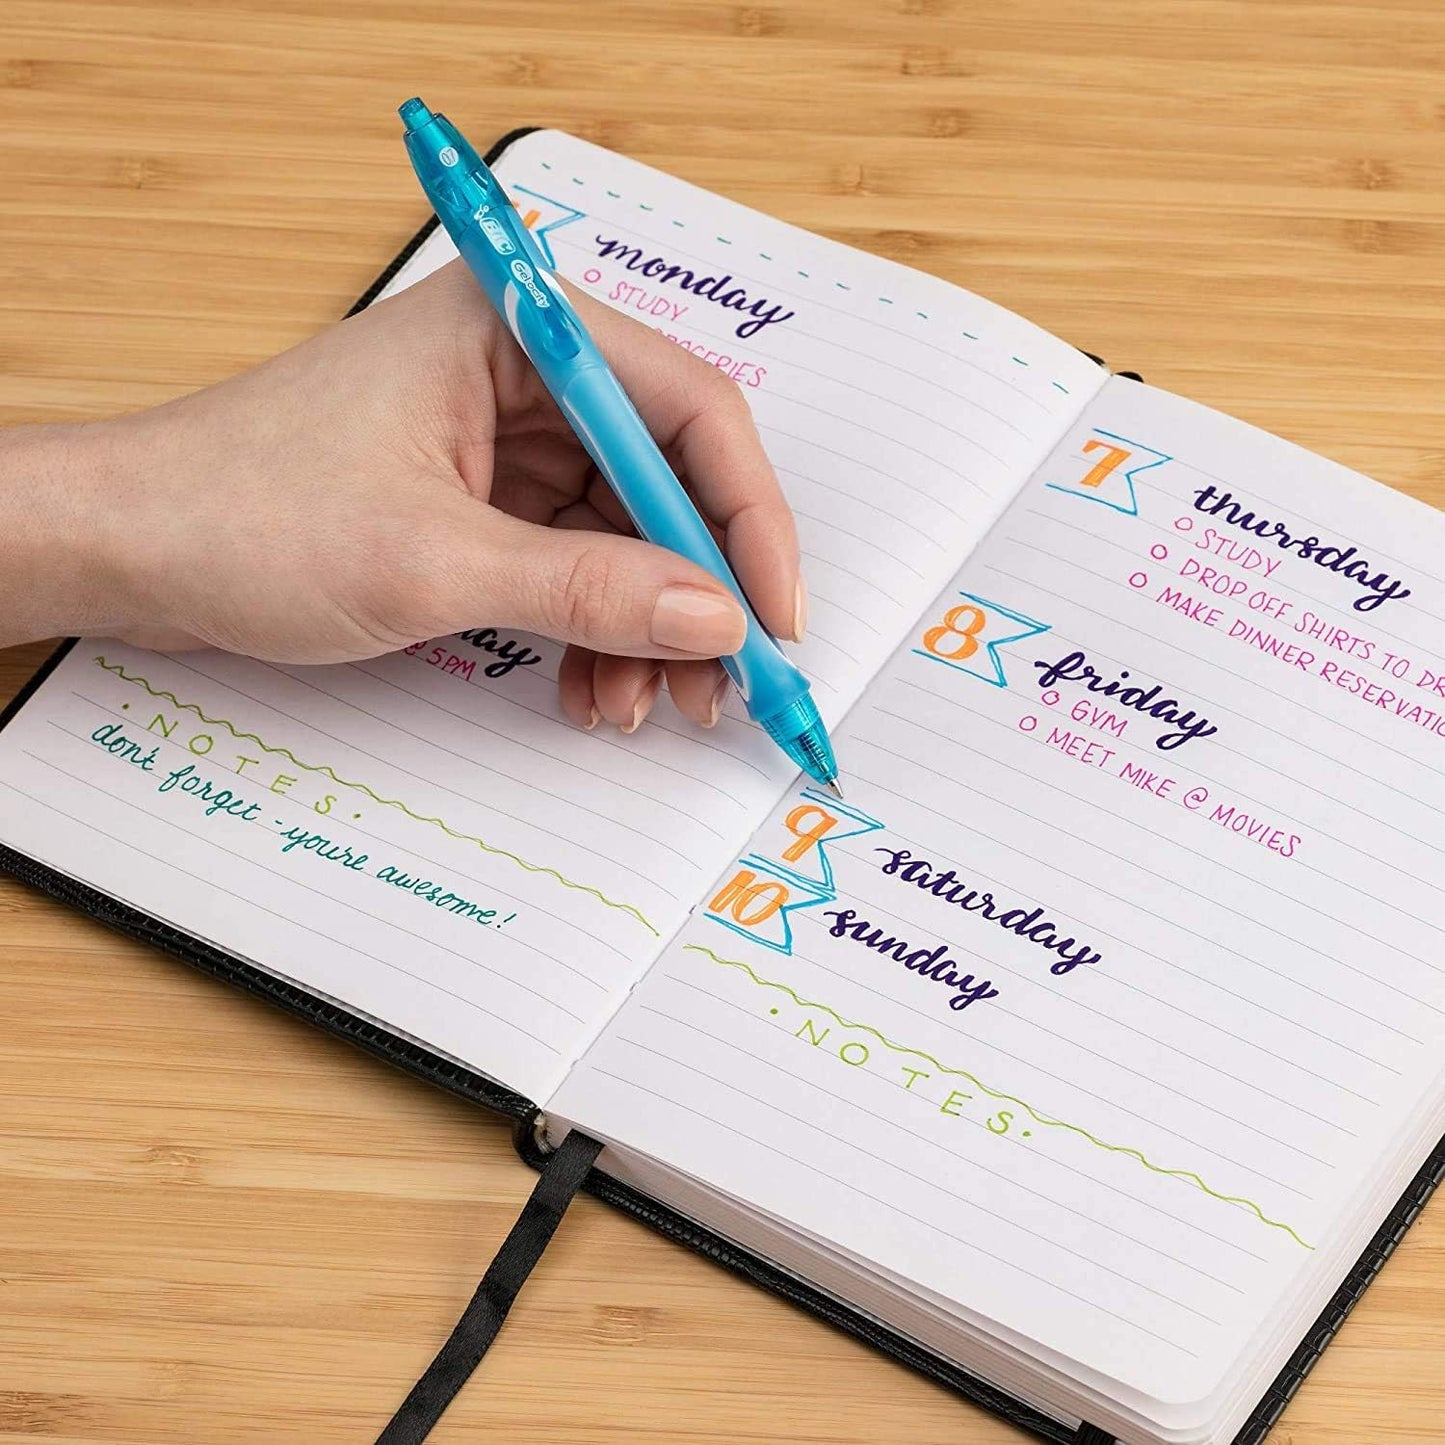 07
BIC
Gelocity
4
monday
STUDY
GROCERIES
@ 5PM
• NOTES •
don't forget - you're awesome!
7 thursday
STUDY
DROP OFF SHIRTS TO
MAKE DINNER
8 friday
GYM
MEET MIKE @ MOVIES
9 saturday
10 sunday
• NOTES •